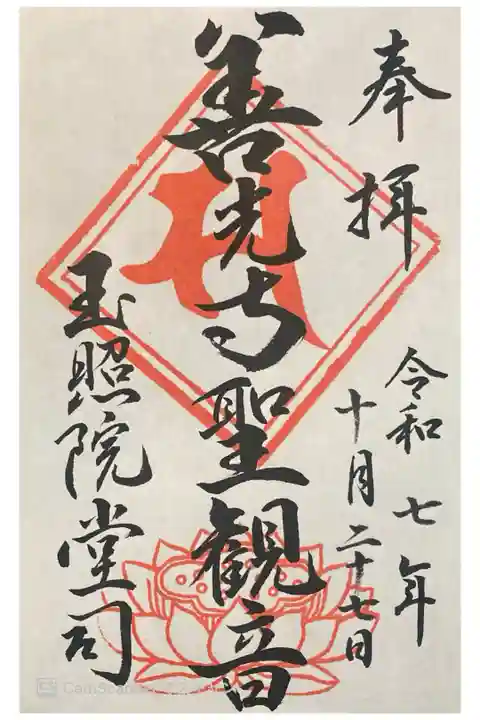 奉拝
令和七年
十月二十七日
善光寺聖観音
玉照院堂司
CamScanner